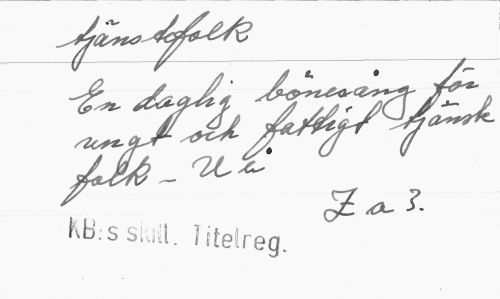 tjänstofolk
En daglig bönesång för
ungt och fattigt tjänste
folk – U å
Z a 3.
KB:s skill. Titelreg.